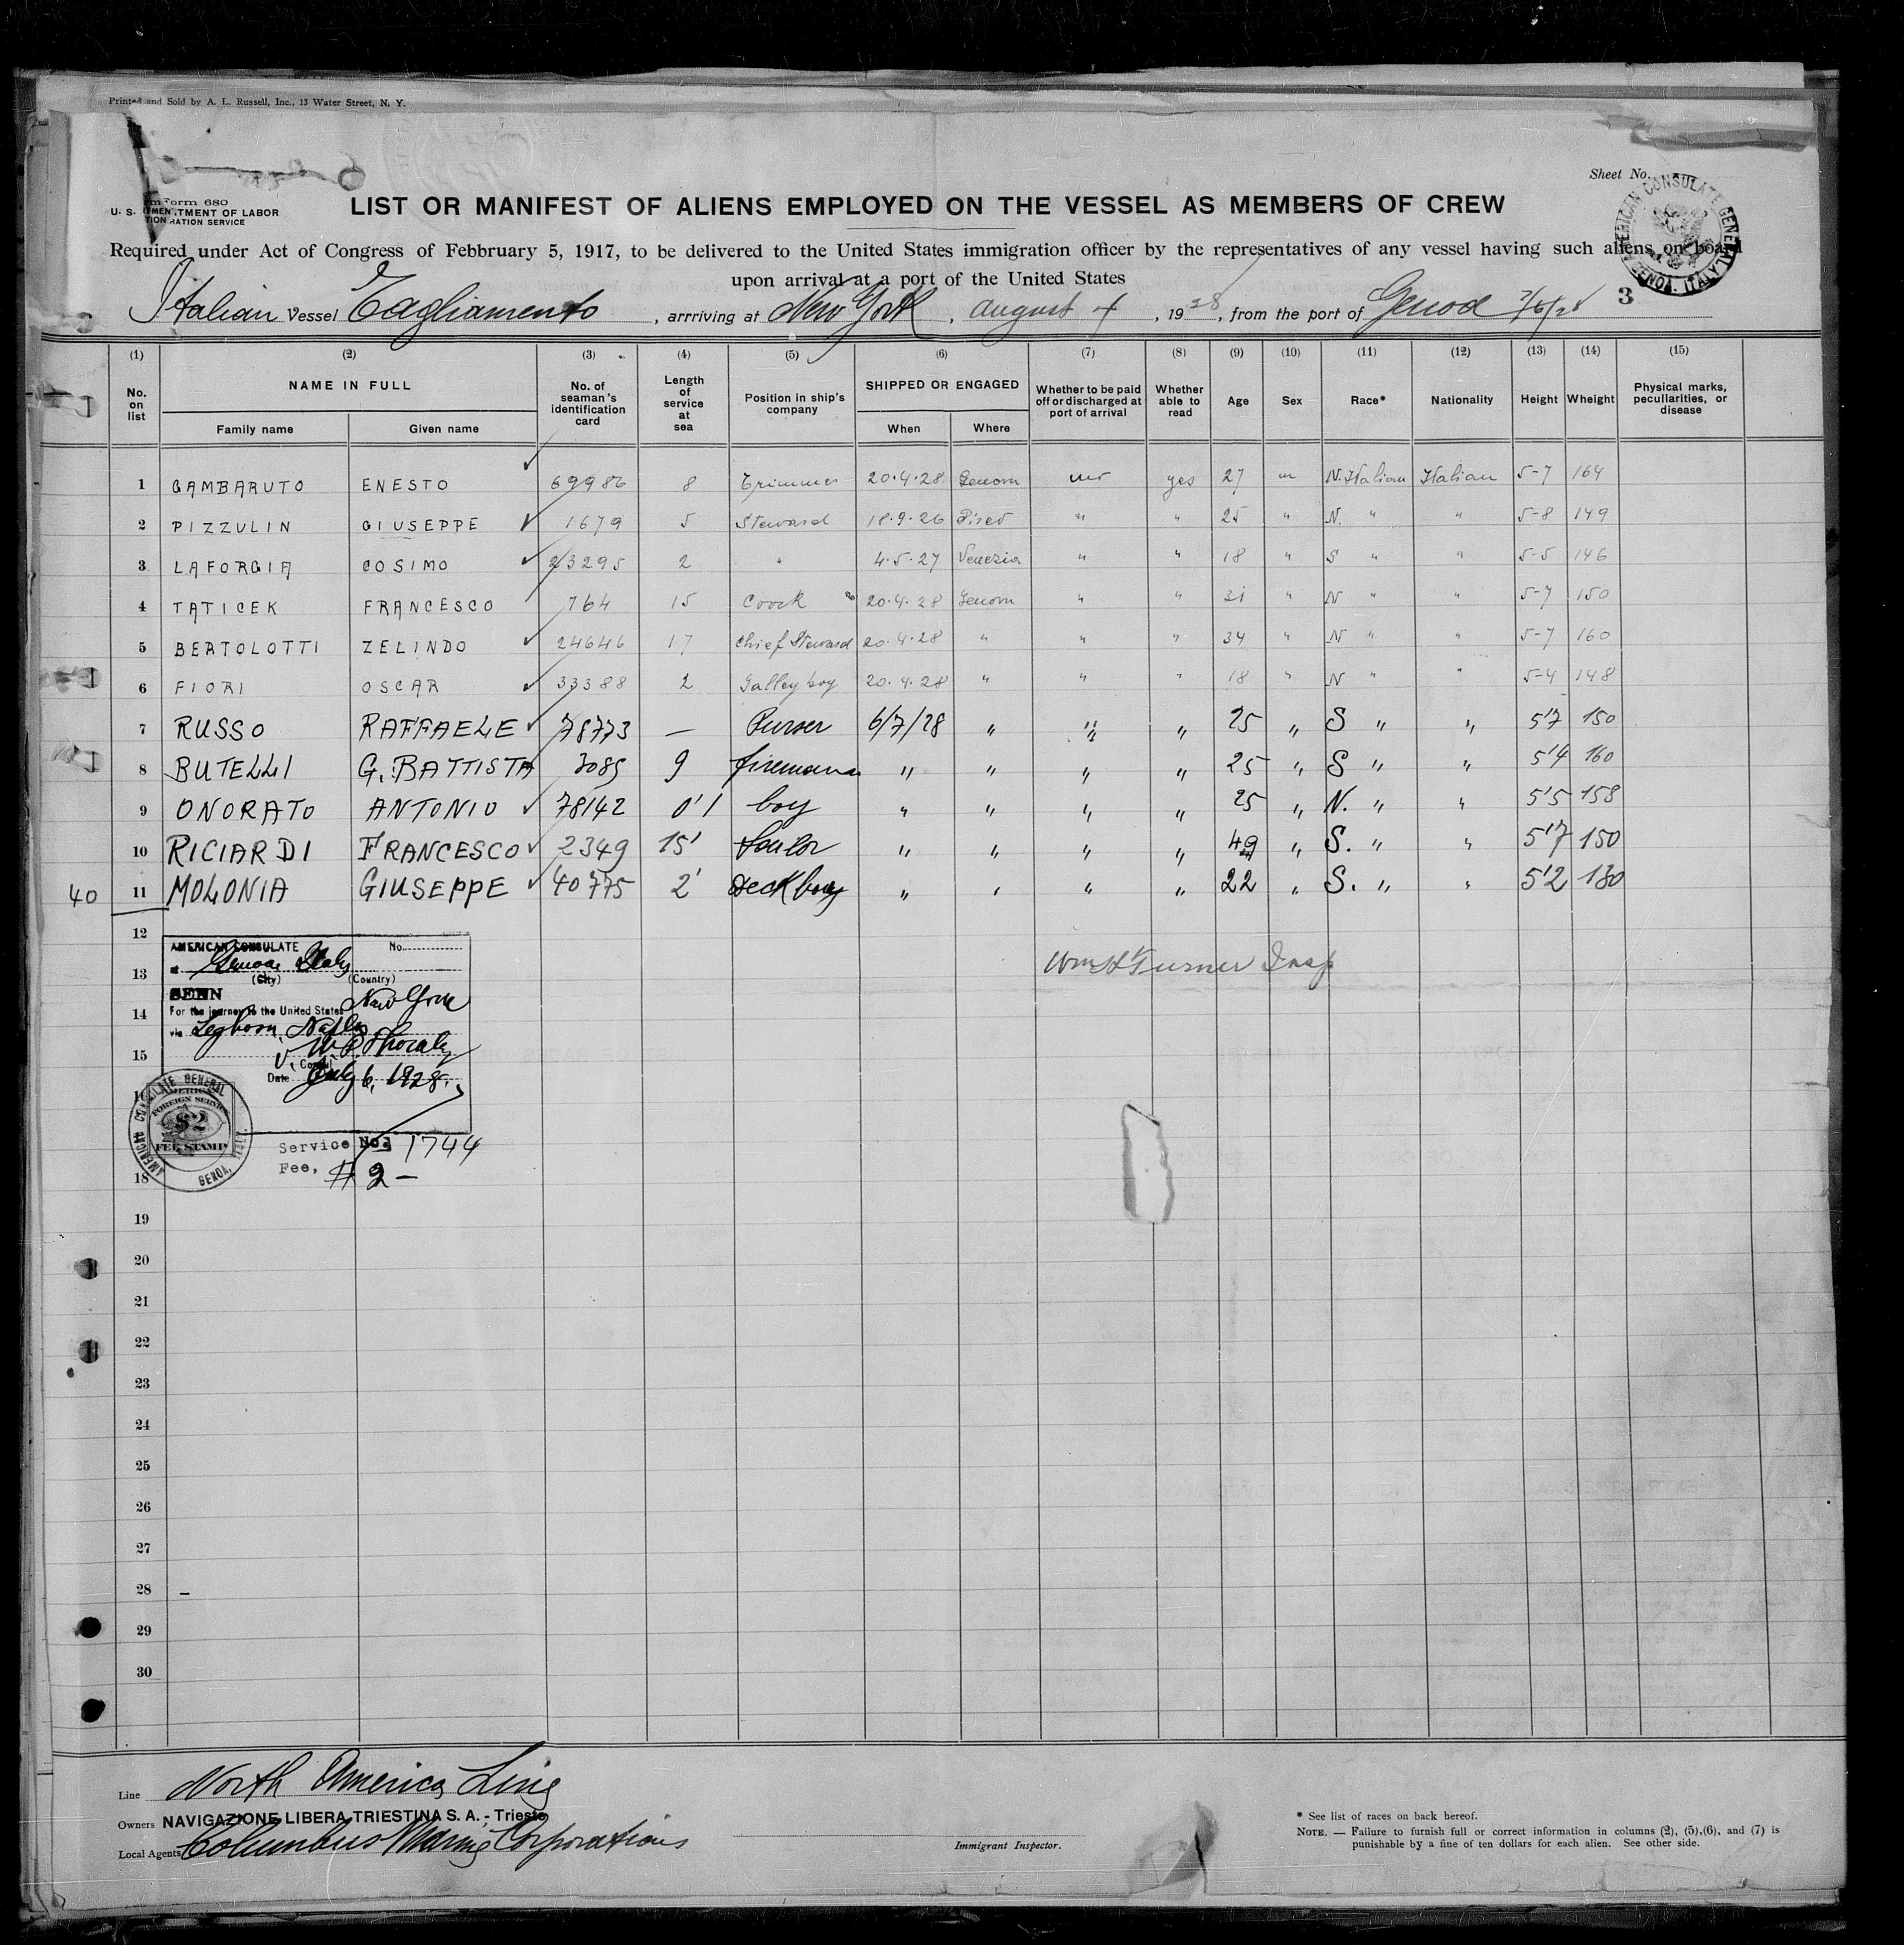 Printed and Sold by A. L. Russell, Inc., 13 Water Street, N. Y.
Sheet No.
Form 680
U. S. DEPARTMENT OF LABOR
IMMIGRATION SERVICE
LIST OR MANIFEST OF ALIENS EMPLOYED ON THE VESSEL AS MEMBERS OF CREW
AMERICAN CONSULATE GENERAL GENOA, ITALY
Required under Act of Congress of Febbruary 5, 1917, to be delivered to the United States immigration officer by the representatives of any vessel having such aliens on board
upon arrival at a port of the United States
3
Italian Vessel Tagliamento, arrriving at New York, august 4, 1928, from the port of Genoa 7/6/28
(1) (2) (3) (4) (5) (6) (7) (8) (9) (10) (11) (12) (13) (14) (15)
No. on list NAME IN FULL Family name Given name No. of seaman's identification card Length of service at sea Position in ship's company SHIPPED OR ENGAGED When Where Whether to be paid off or discharged at port of arrival Whether able to read Age Sex Race* Nationality Height Wheight Physical marks, peculiarities, or disease
1 GAMBARUTO ENESTO 69986 8 Trimmer 20.4.28 Genova no yes 27 m N. Italian Italian 5-7 164
2 PIZZULIN GIUSEPPE 1679 5 Steward 18.9.26 " " 25 " N. " " 5-8 149
3 LAFORGIA COSIMO 23295 2 " 4.5.27 Venezia " " 18 " S " " 5-5 146
4 TATICEK FRANCESCO 764 15 Coock 20.4.28 Genova " " 31 " N " " 5-7 150
5 BERTOLOTTI ZELINDO 24646 17 Chief Steward 20.4.28 " " " 34 " N " " 5-7 160
6 FIORI OSCAR 33388 2 Galley boy 20.4.28 " " " 18 " N " " 5-4 148
7 RUSSO RAFFAELE 78773 — Purser 6/7/28 " " " 25 " S " " 5'7 150
8 BUTELLI G. BATTISTA 3085 9 fireman " " " " 25 " S " " 5'4 160
9 ONORATO ANTONIO 78142 0'1 boy " " " " 25 " N. " " 5'5 158
10 RICIARDI FRANCESCO 2349 15' Sailor " " " " 49 " S. " " 5'7 150
40 11 MOLONIA GIUSEPPE 40775 2' Deck boy " " " " 22 " S. " " 5'2 130
12
AMERICAN CONSULATE No.
13
at Genoa Italy
(City) (Country)
Wm H Turner Insp
SEEN
14
For the journey to the United States New York
via Leghorn, Naples
15
V. Consul
Date July 6, 1928.
AMERICAN CONSULATE GENERAL GENOA, ITALY
AMERICAN FOREIGN SERVICE $2 FEE STAMP
Service No. 1744
Fee, $ 2 —
18
19
20
21
22
23
24
25
26
27
28 –
29
30
Line North America Line
Owners NAVIGAZIONE LIBERA TRIESTINA S. A. - Trieste
Local Agents Columbus Marine Corporations
Immigrant Inspector.
* See list of races on back hereof.
NOTE. — Failure to furnish full or correct information in columns (2), (5),(6), and (7) is
punishable by a fine of ten dollars for each alien. See other side.